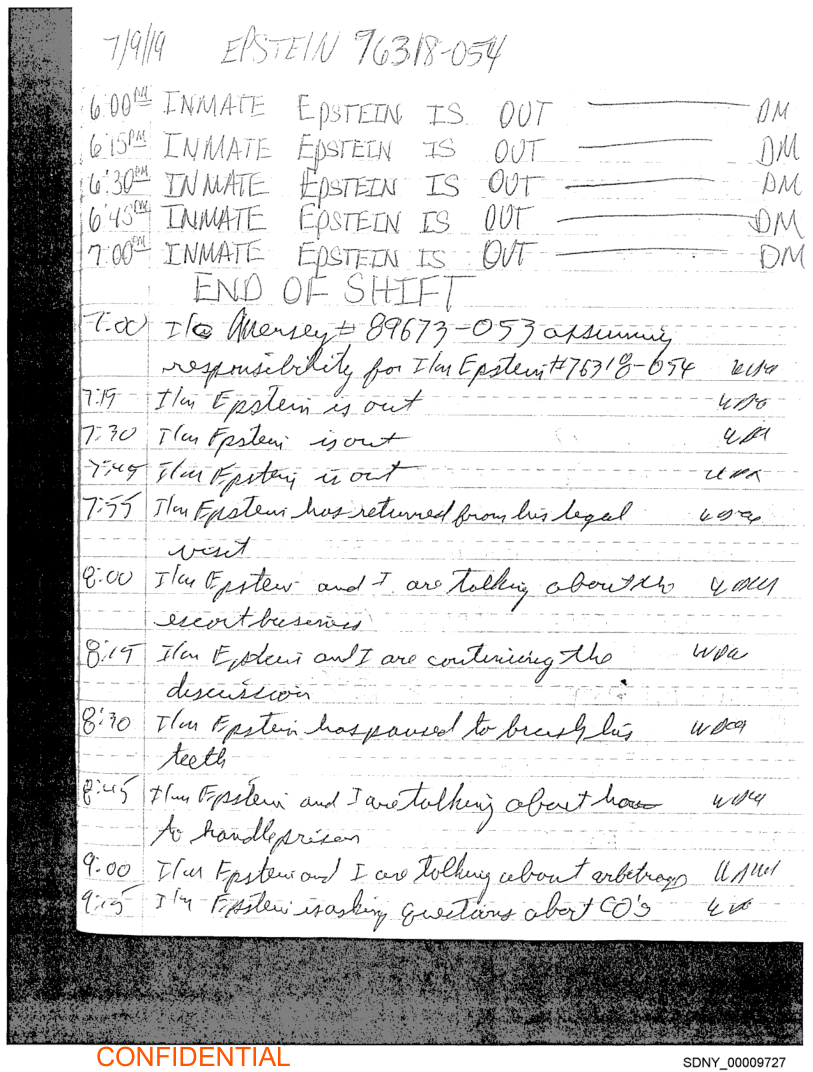 7/9/19 EPSTEIN 76318-054
6:00PM INMATE EPSTEIN IS OUT DM
6:15PM INMATE EPSTEIN IS OUT DM
6:30PM INMATE EPSTEIN IS OUT DM
6:45PM INMATE EPSTEIN IS OUT DM
7:00PM INMATE EPSTEIN IS OUT DM
END OF SHIFT
7:00 I/C Mersey # 89673-053 assuming
responsibility for I/m Epstein #76318-054
7:15 I/m Epstein is out
7:30 I/m Epstein is out
7:45 I/m Epstein is out
7:55 I/m Epstein has returned from his legal
visit
8:00 I/m Epstein and I are talking about the
escort business
8:15 I/m Epstein and I are continuing the
discussion
8:30 I/m Epstein has paused to brush his
teeth
8:45 I/m Epstein and I are talking about how
to handle prison
9:00 I/m Epstein and I are talking about arbetrage
9:15 I/m Epstein is asking questions abort CO's
CONFIDENTIAL
SDNY_00009727